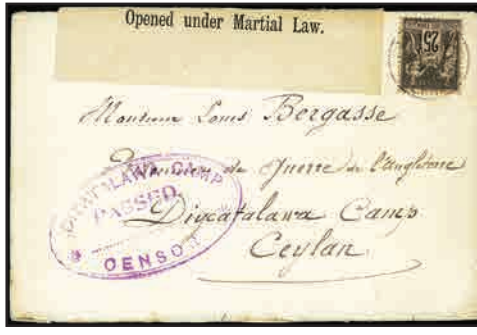 Opened under Martial Law.
25
Monsieur Louis Bergasse
Prisonnier de Guerre de l'Angleterre
Diyatalawa Camp
Ceylan
DIYATALAWA CAMP
PASSED
CENSOR